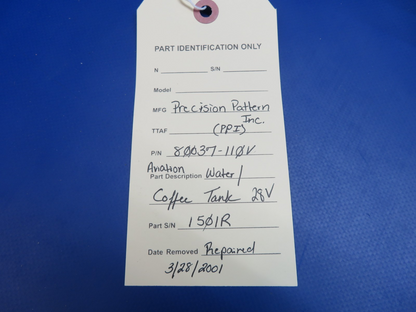 PART IDENTIFICATION ONLY
N ________ S/N ________
Model ________
MFG Precision Pattern
Inc.
TTAF (PPI)
P/N 80037-110V
Aviation
Part Description Water/
Coffee Tank 28V
Part S/N 1501R
Date Removed Repaired
3/28/2001